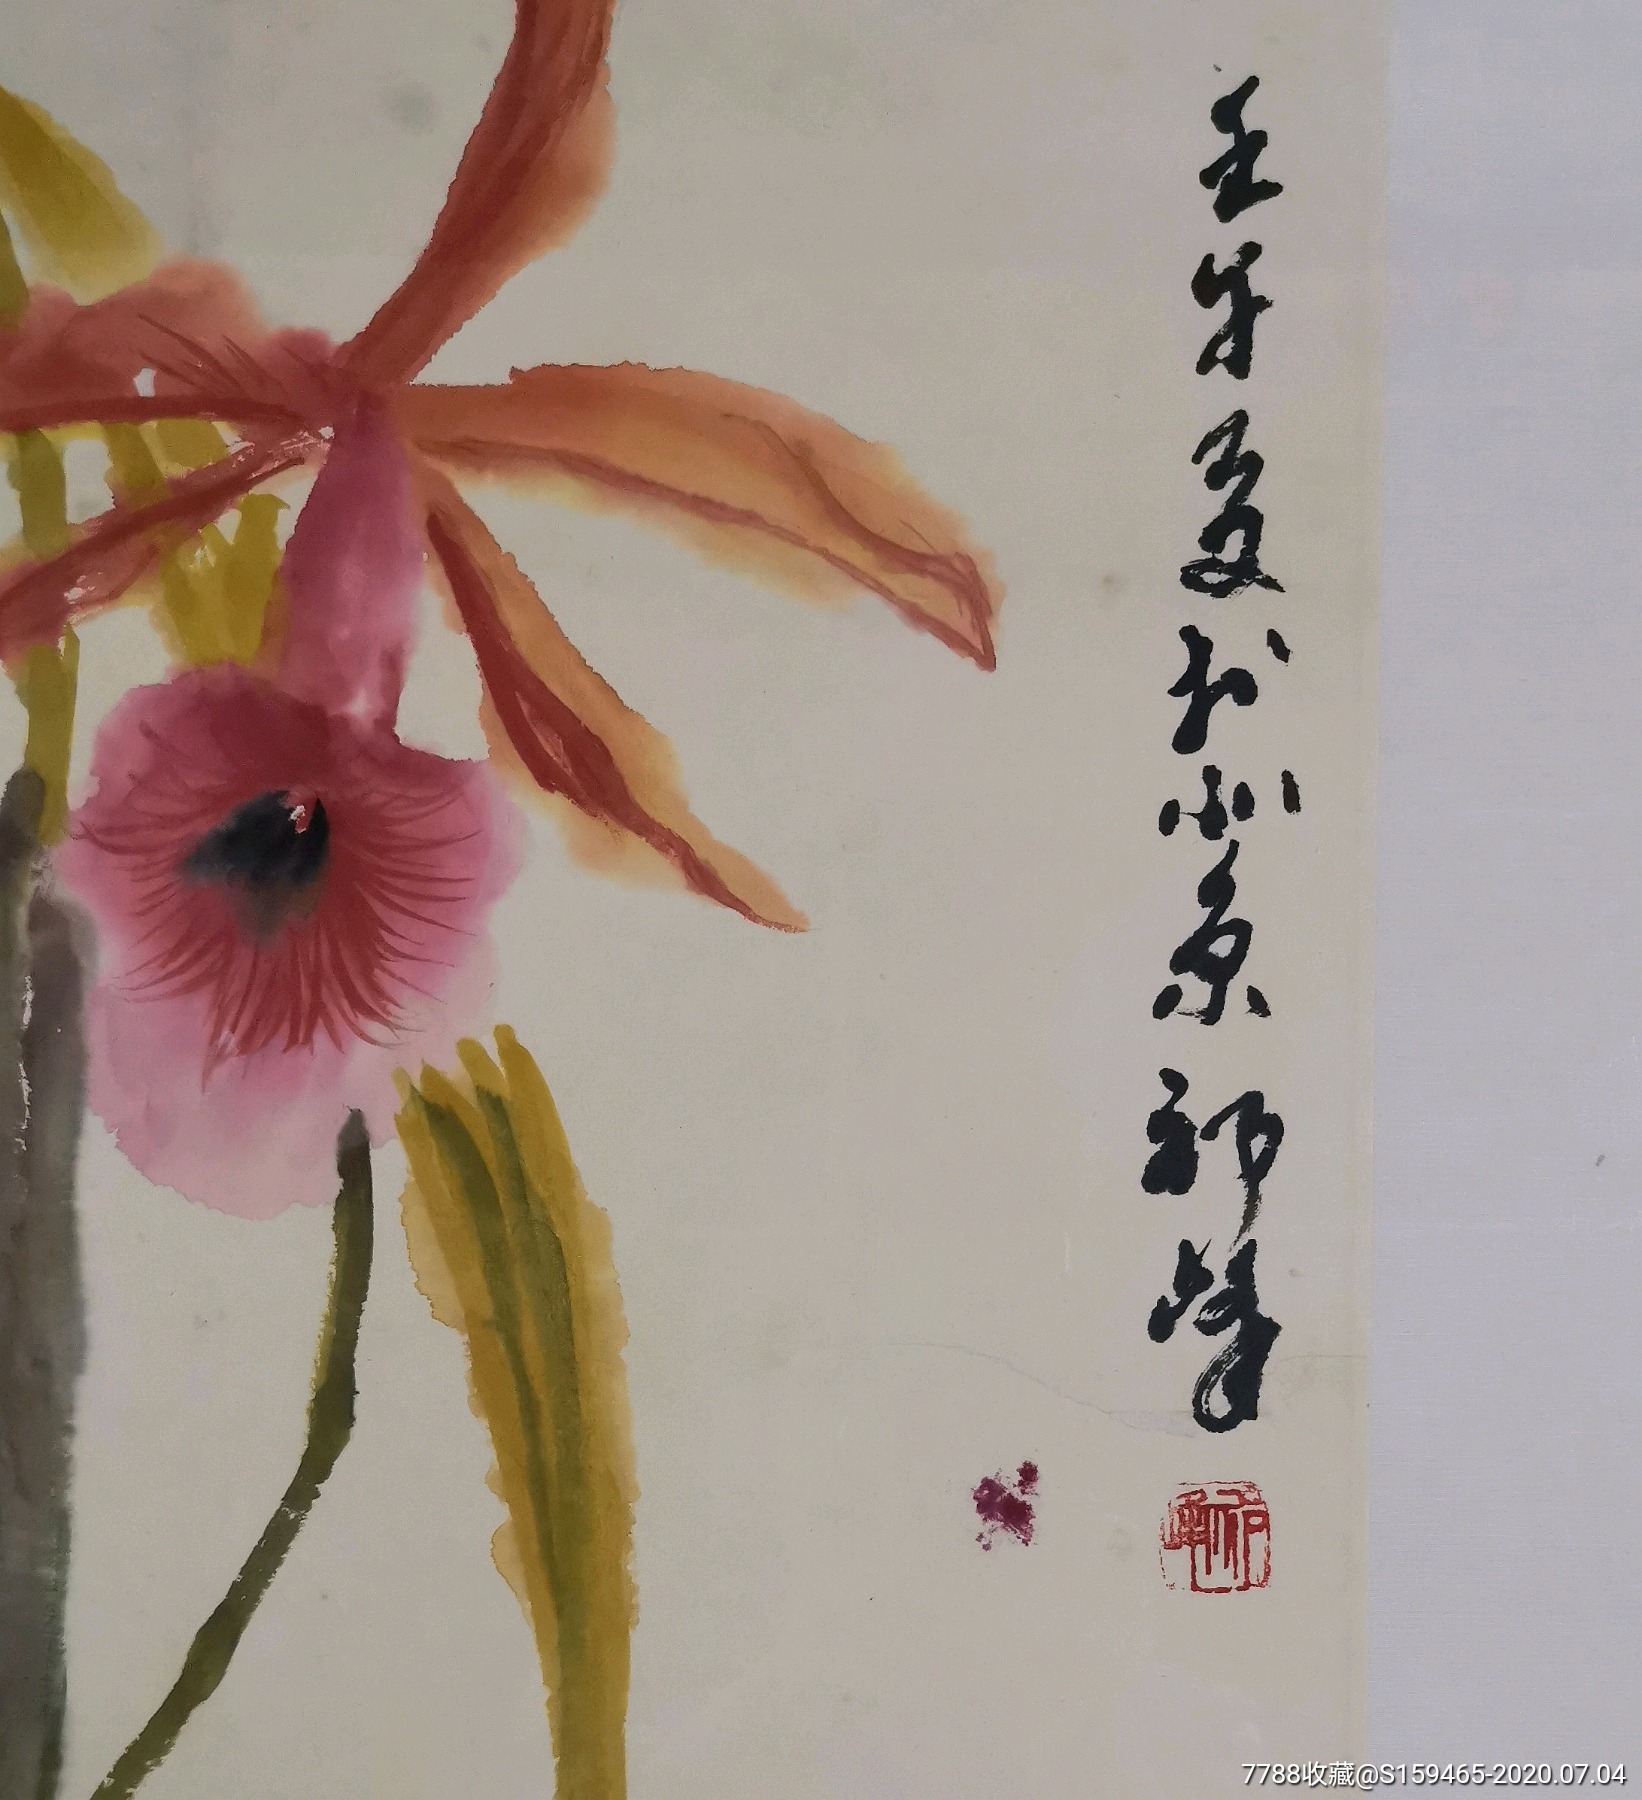 壬午夏于北京祁峰
7788收藏@S159465-2020.07.04